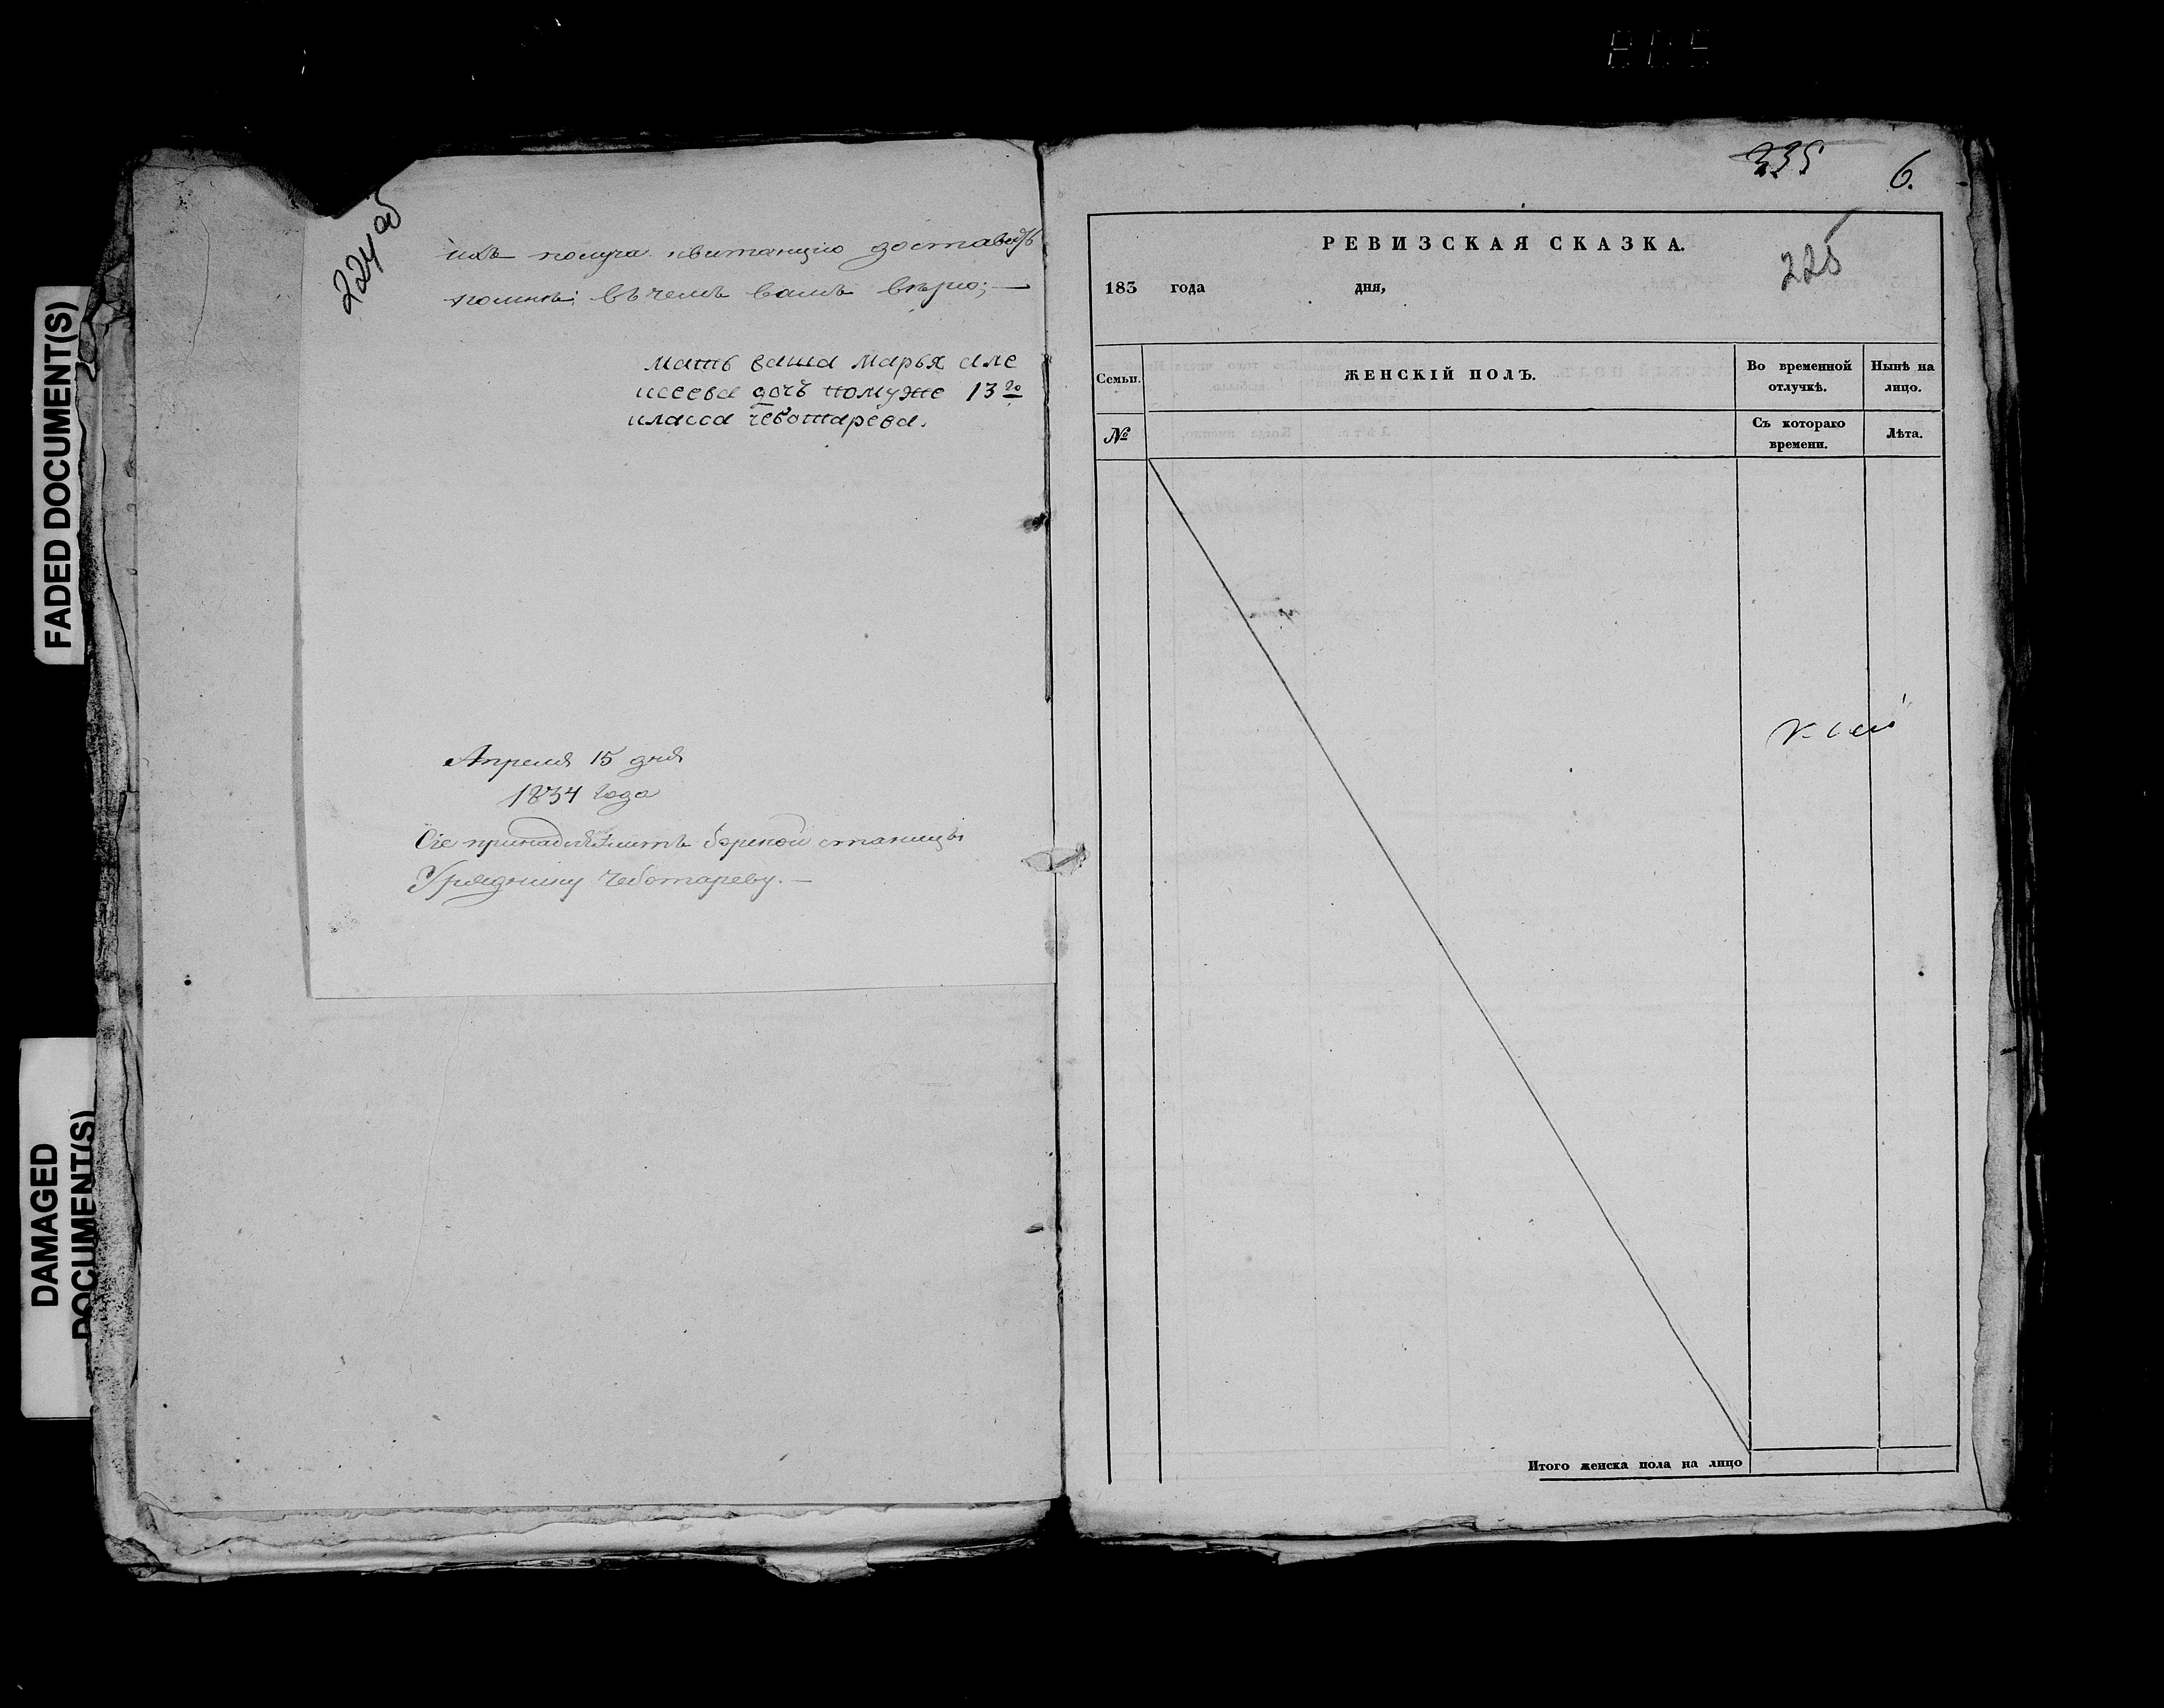 FADED DOCUMENT(S)
DAMAGED
DOCUMENT(S)
224 об
ихъ получа квитанцію доставить
комнѣ: въчемъ вамъ вѣрю;—
мать ваша марья але
ксеева дочъ помуже 13го
класса чевотарева.
Апреля 15 дня
1834 года
Сіе принадлѣжитъ борской станицы
Уряднику Чеботареву.—
335
6.
РЕВИЗСКАЯ СКАЗКА.
225
183 года дня,
Семьи.
ЖЕНСКІЙ ПОЛЪ.
Во временной отлучкѣ.
Нынѣ на лицо.
№
Съ котораго времени.
Лѣта.
Итого женска пола на лицо